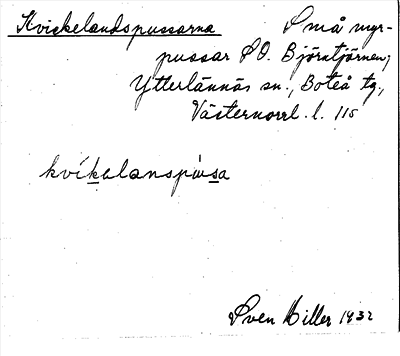 Kvickelandspussarna Små myr-
pussar SO. Björntjärnen,
Ytterlännäs sn., Boteå tg.,
Västernorrl. l. 115
kvíkelanspùsa
Sven Hiller 1932